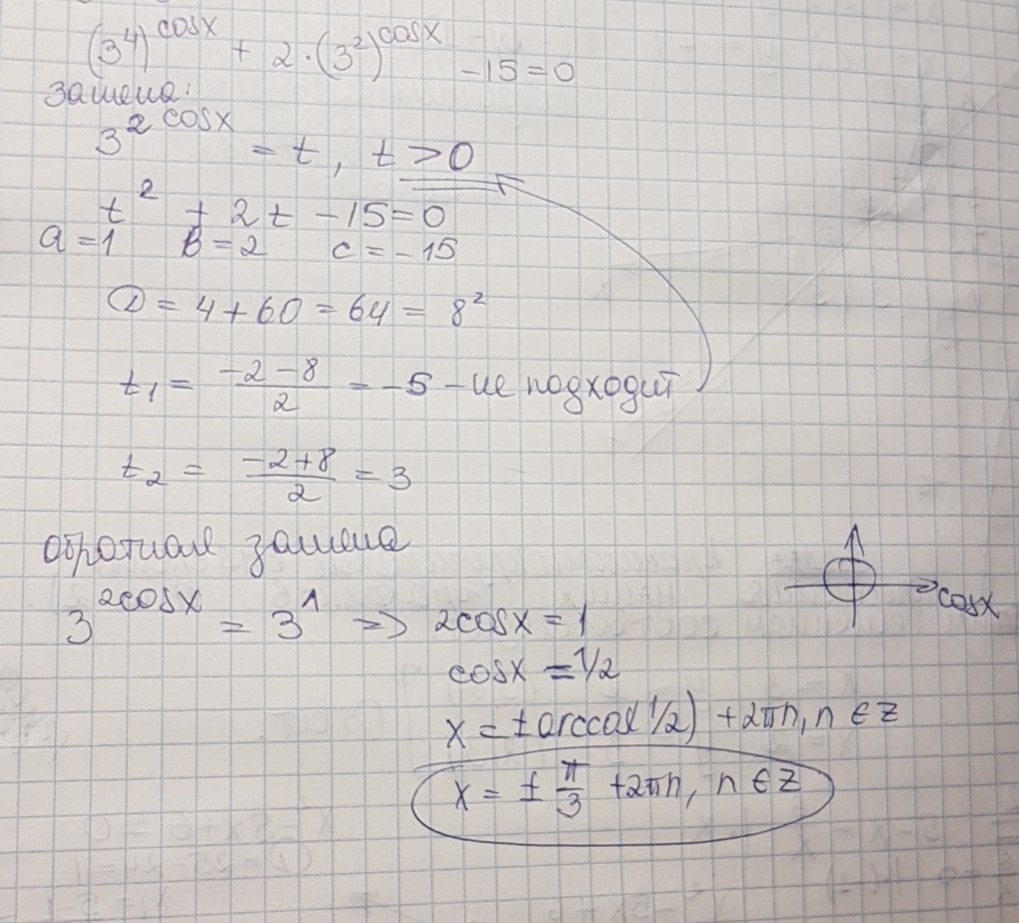 (3⁴)^cosx + 2·(3²)^cosx -15=0
замена:
3^2cosx = t, t>0
t² + 2t -15=0
a=1 b=2 c=-15
D = 4+60=64= 8²
t₁ = (-2-8)/2 = -5 -не подходит
t₂ = (-2+8)/2 = 3
обратная замена
3^2cosx = 3^1 => 2cosx=1
cosx
cosx = 1/2
x = ±arccos(1/2) +2πn, n∈Z
x = ± π/3 +2πn, n∈Z